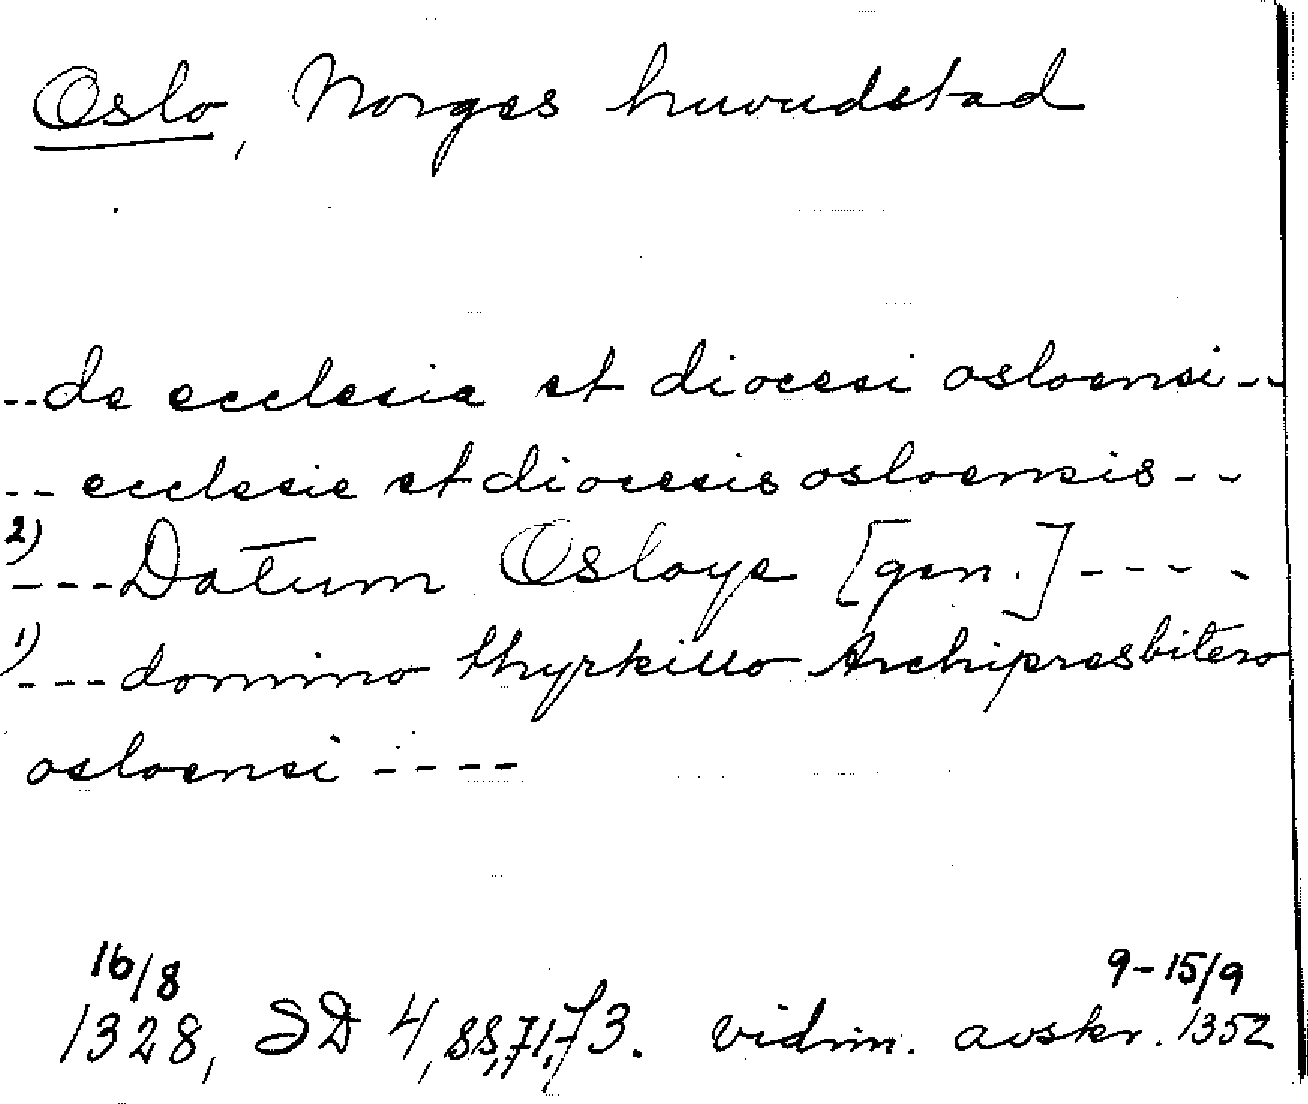 Oslo, Norges huvudstad
--de ecclesia et diocesi osloensi--
-- ecclesie et diocesis osloensis--
2)
---Datum Osloye [gen.]-----
1)
---domino thyrkillo Archipresbitero
osloensi ----
16/8 9-15/9
1328, SD 4, SS, 71, 73. vidim. avskr. 1352